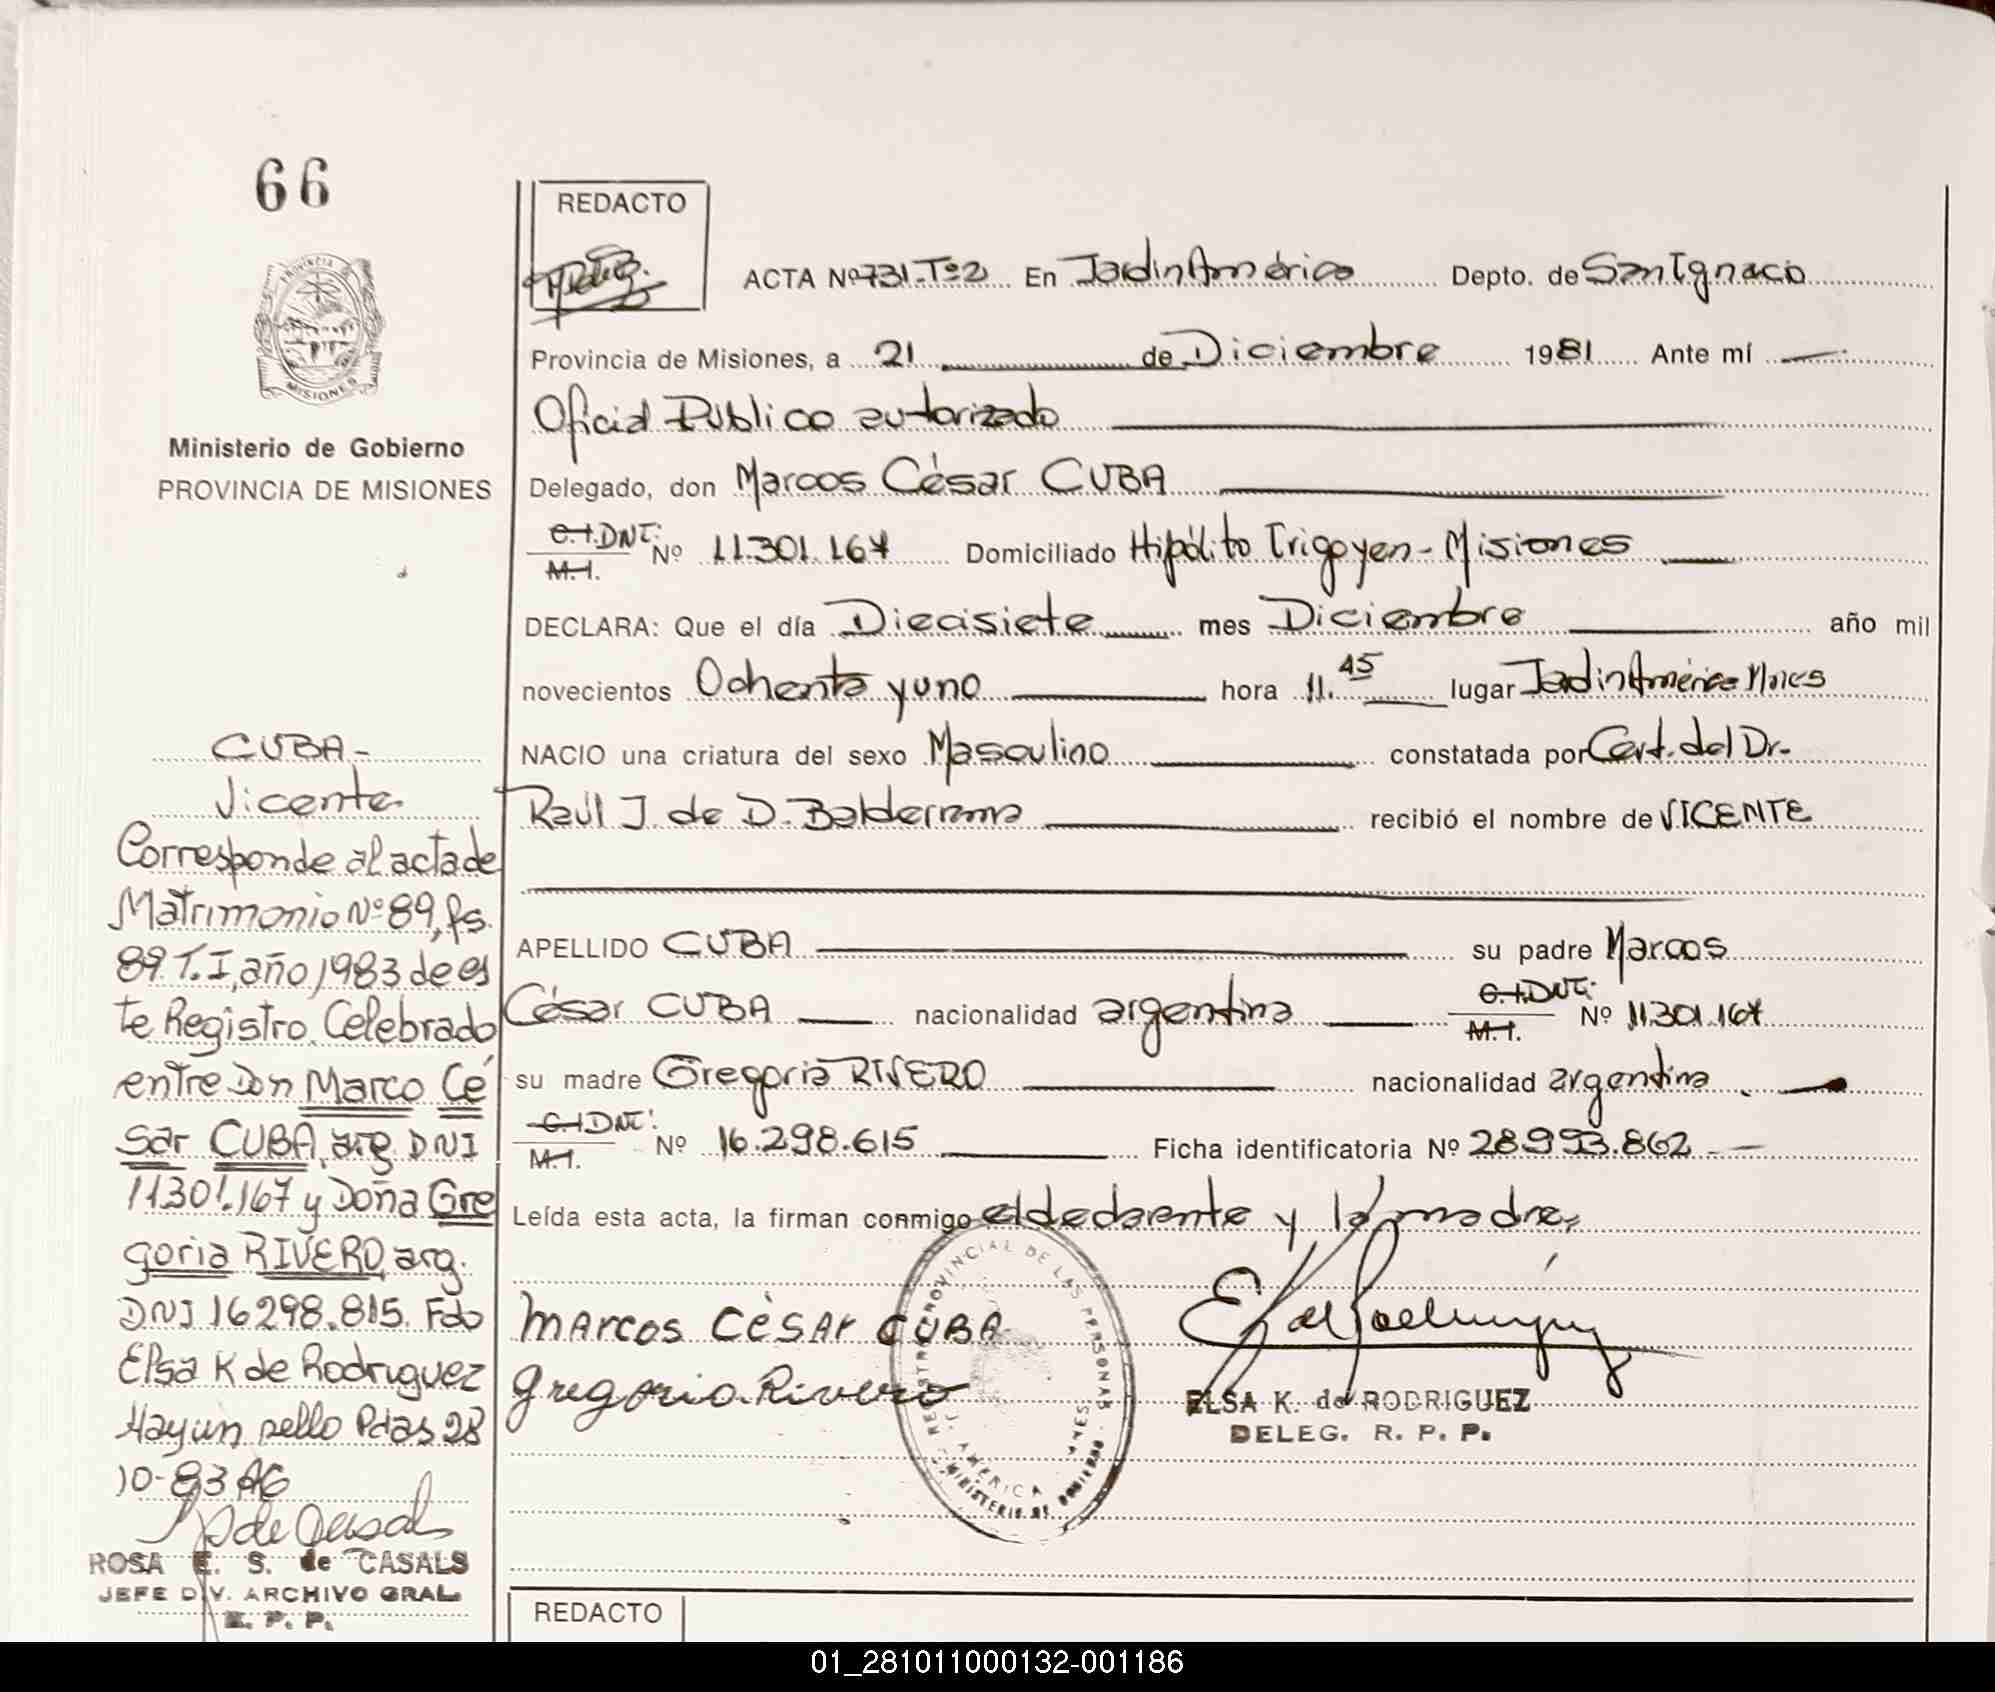 66
REDACTO
ACTA Nº 731-Tº2 En Jardin América Depto. de San Ignacio
Provincia de Misiones, a 21 de Diciembre 1981 Ante mí
Oficial Público autorizado
Delegado, don Marcos César CUBA
C.I. DNI: M.I. Nº 11.301.167 Domiciliado Hipólito Irigoyen - Misiones
DECLARA: Que el día Diecisiete mes Diciembre año mil
novecientos Ochenta y uno hora 11.45 lugar Jardin América Mnes
NACIO una criatura del sexo Masculino constatada por Cert. del Dr.
Raúl J. de D. Balderrama recibió el nombre de VICENTE
APELLIDO CUBA su padre Marcos
César CUBA nacionalidad argentina C.I. DNI: M.I. Nº 11301.167
su madre Gregoria RIVERO nacionalidad argentina
C.I DNI: M.I. Nº 16.298.615 Ficha identificatoria Nº 28.993.862
Leída esta acta, la firman conmigo el declarente y la madre
MARCOS CÉSAR CUBA
Gregoria Rivero
ELSA K. de RODRIGUEZ
DELEG. R. P. P.
REGISTRO PROVINCIAL DE LAS PERSONAS
J. AMERICA
MINISTERIO DE GOBIERNO
PROVINCIA
MISIONES
Ministerio de Gobierno
PROVINCIA DE MISIONES
CUBA-
Vicente
Corresponde al acta de
Matrimonio Nº 89, fs.
89 T. I, año 1983 de es
te Registro. Celebrado
entre Don Marco Cé
sar CUBA, arg. DNI
11301.167 y Doña Gre
goria RIVERO, arg.
DNI 16298.815. Fdo
Elsa K de Rodriguez
Hay un sello Pdas 28
10-83
ROSA E. S. de CASALS
JEFE DIV. ARCHIVO GRAL
R. P. P.
REDACTO
01_281011000132-001186